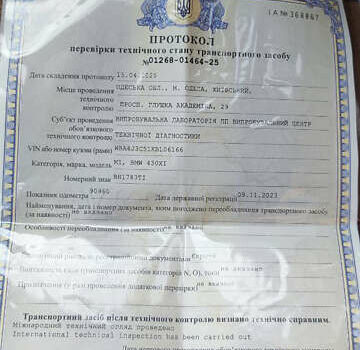 ІА № 368867
ПРОТОКОЛ
перевірки технічного стану транспортного засобу
№01268-01464-25
Дата складення протоколу 15.04.2025
Місце проведення ОДЕСЬКА ОБЛ., М. ОДЕСА, КИЇВСЬКИЙ,
технічного
контролю ПРОСП. ГЛУШКА АКАДЕМІКА, 29
Суб'єкт проведення ВИПРОБУВАЛЬНА ЛАБОРАТОРІЯ ПП ВИПРОБУВАЛЬНИЙ ЦЕНТР
обов'язкового
технічного контролю ТЕХНІЧНОЇ ДІАГНОСТИКИ
VIN або номер кузова (рами)
Категорія, марка, модель M1, BMW 430XI
Номерний знак BH1783TI
Показання одометра 90460 Дата державної реєстрації 09.11.2023
Найменування, дата і номер документа, яким погоджено переобладнання транспортного засобу
(за наявності) не вказано
Особливості переобладнання (за наявності) не вказано
не вказано
Примітки (у разі проведення додаткової перевірки) не вказано
Транспортний засіб після технічного контролю визнано технічно справним.
Міжнародний технічний огляд проведено
International technical inspection has been carried out
Дата чергового проведення технічного контролю